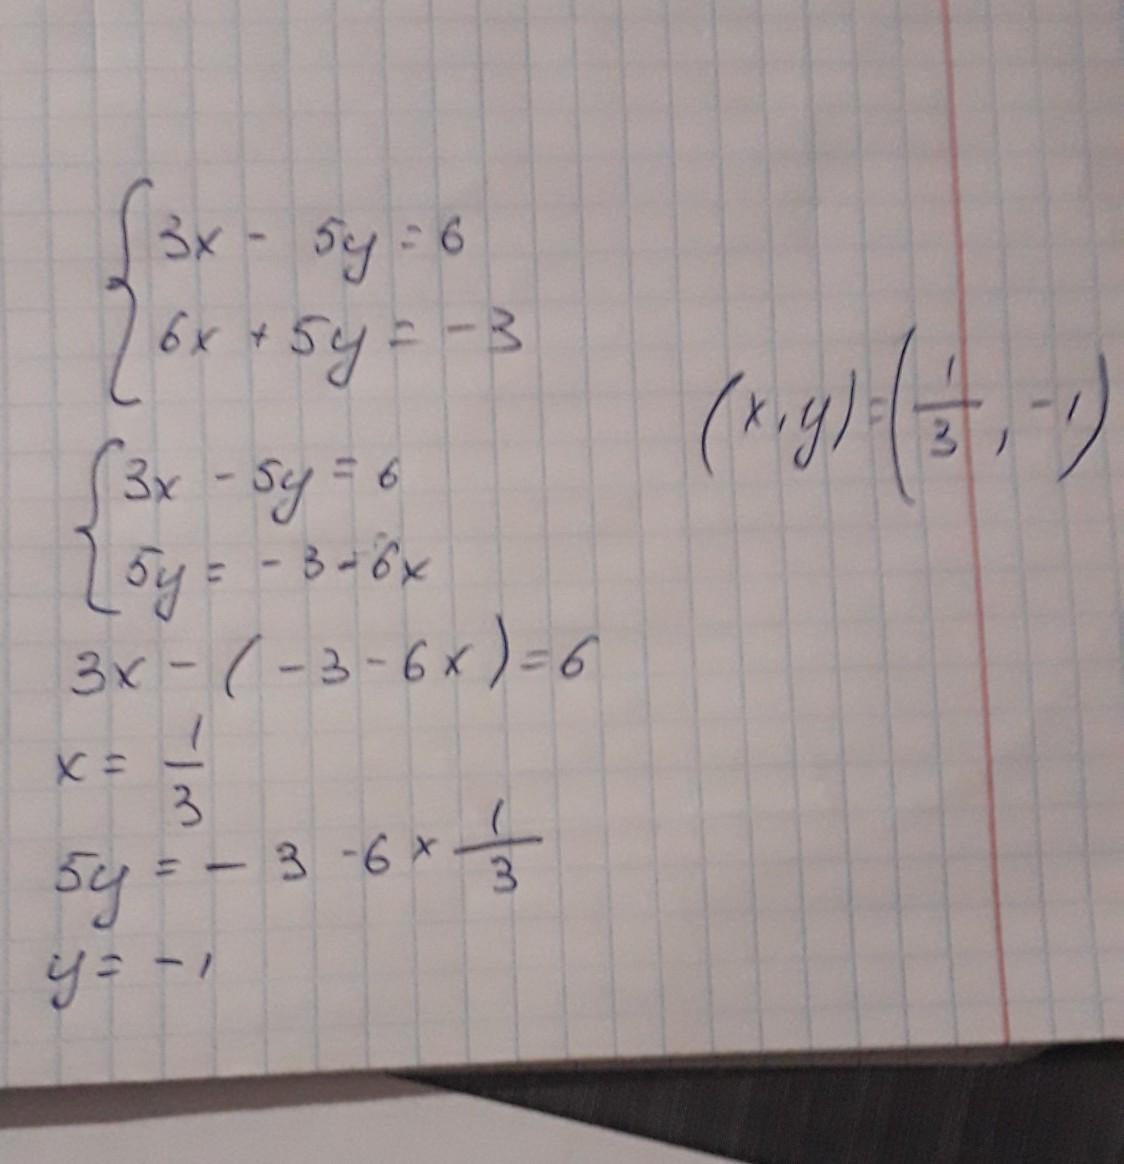 3x - 5y = 6
6x + 5y = -3
3x - 5y = 6
5y = -3 - 6x
3x - (-3 - 6x) = 6
x = 1/3
5y = -3 - 6 × 1/3
y = -1
(x, y) = (1/3, -1)